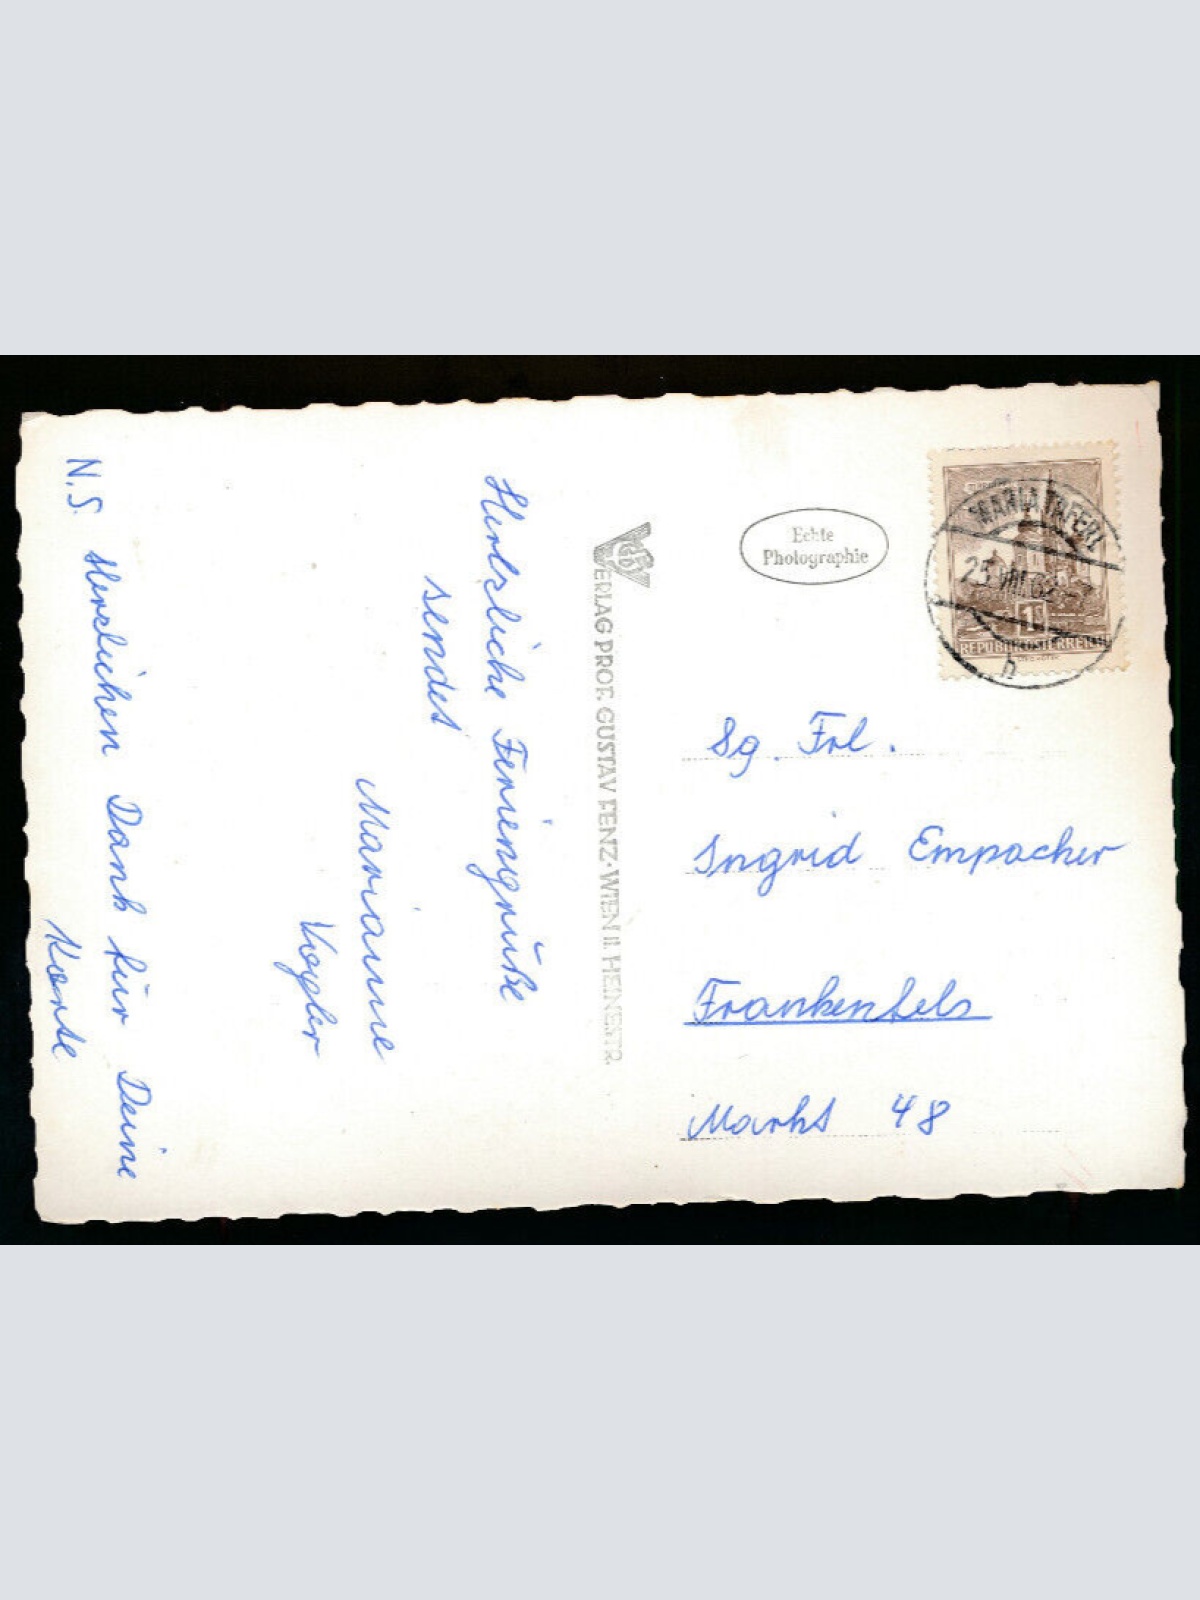 Herzliche Feriengrüße
sendet
Marianne
Vogler
N.S. Herzlichen Dank für Deine
Karte
VERLAG PROF. GUSTAV FENZ · WIEN II. HEINESTR.
Echte
Photographie
MARIA TAFERL
25.VIII.62-7
1S
REPUBLIK ÖSTERREICH
h
Sg. Frl.
Ingrid Empacher
Frankenfels
Markt 48